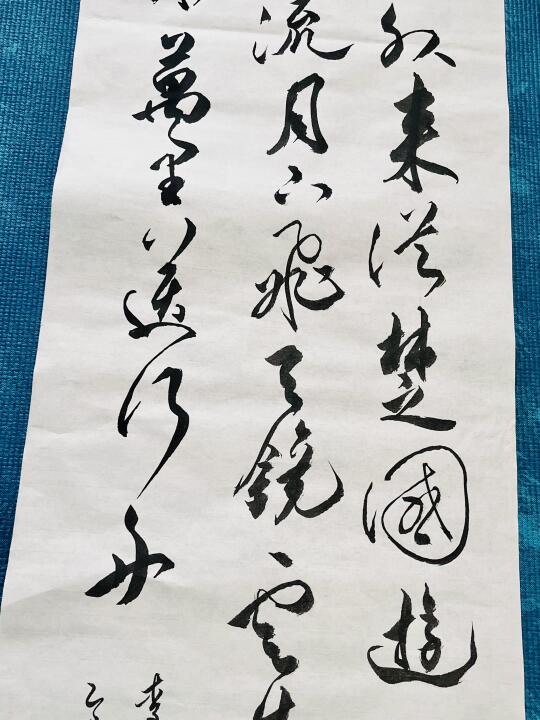 外来從楚國遊
流月下飛天鏡雲生
萬里送行舟
李